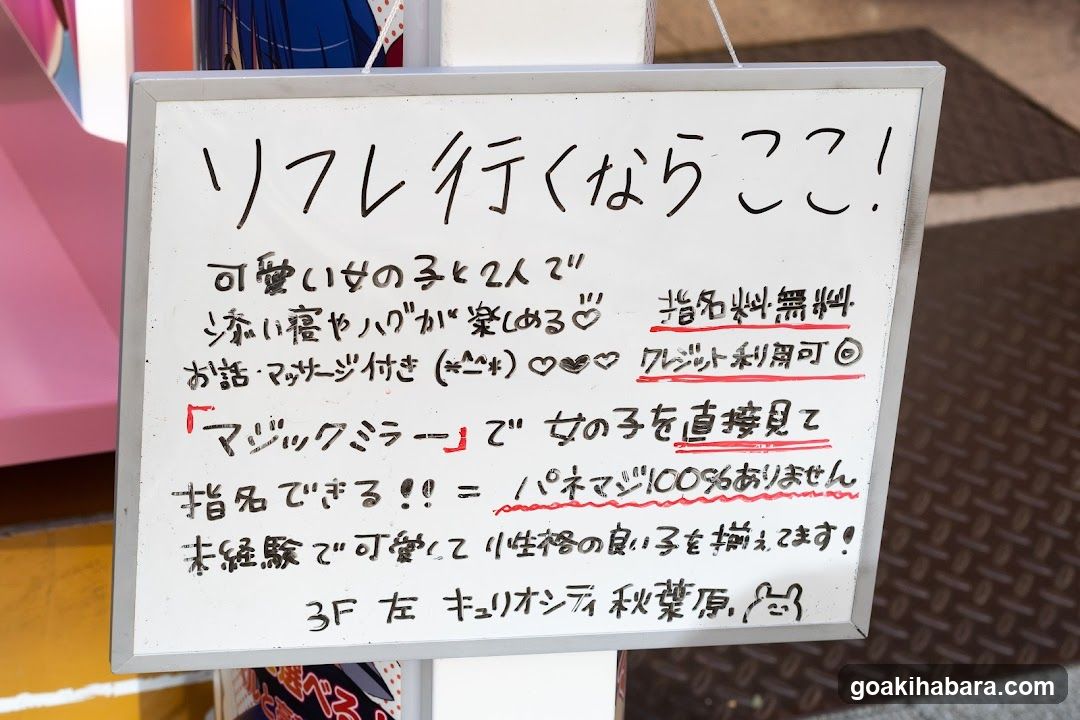 リフレ行くならここ!
可愛い女の子と2人で
添い寝やハグが楽しめる♡
お話・マッサージ付き(*^^*)♡♥♡
指名料無料
クレジット利用可◎
「マジックミラー」で女の子を直接見て
指名できる!! = パネマジ100%ありません
未経験で可愛くて性格の良い子を揃えてます!
3F 左 キュリオシティ秋葉原
選べる
goakihabara.com